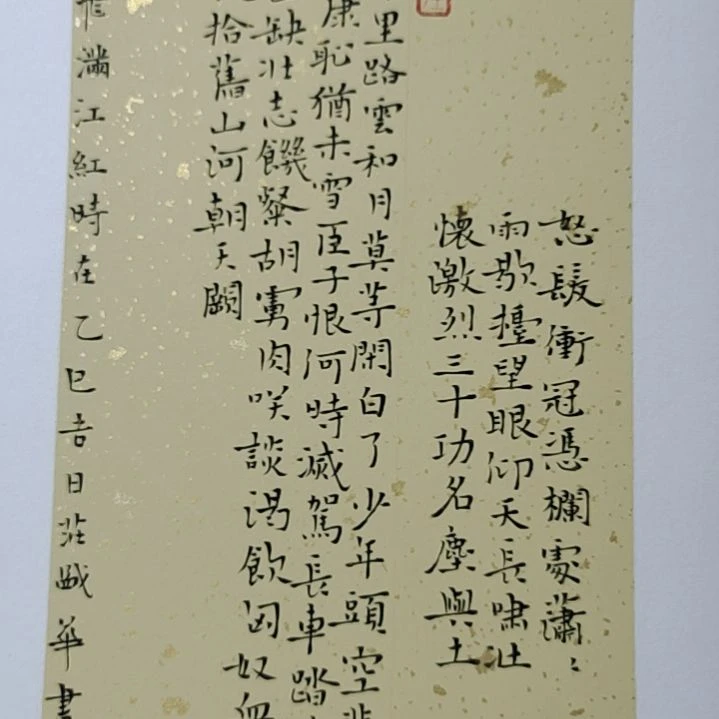 怒髮衝冠憑欄處蕭〻
雨歇擡望眼仰天長嘯壯
懷激烈三十功名塵與土
里路雲和月莫等閑白了少年頭空悲
康恥猶未雪臣子恨河時滅駕長車踏
缺壯志饑餐胡虜肉咲談渴飲匈奴血
拾舊山河朝天闕
飛滿江紅時在乙巳吉日莊華書